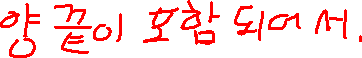 양 끝이 포함 되어서.